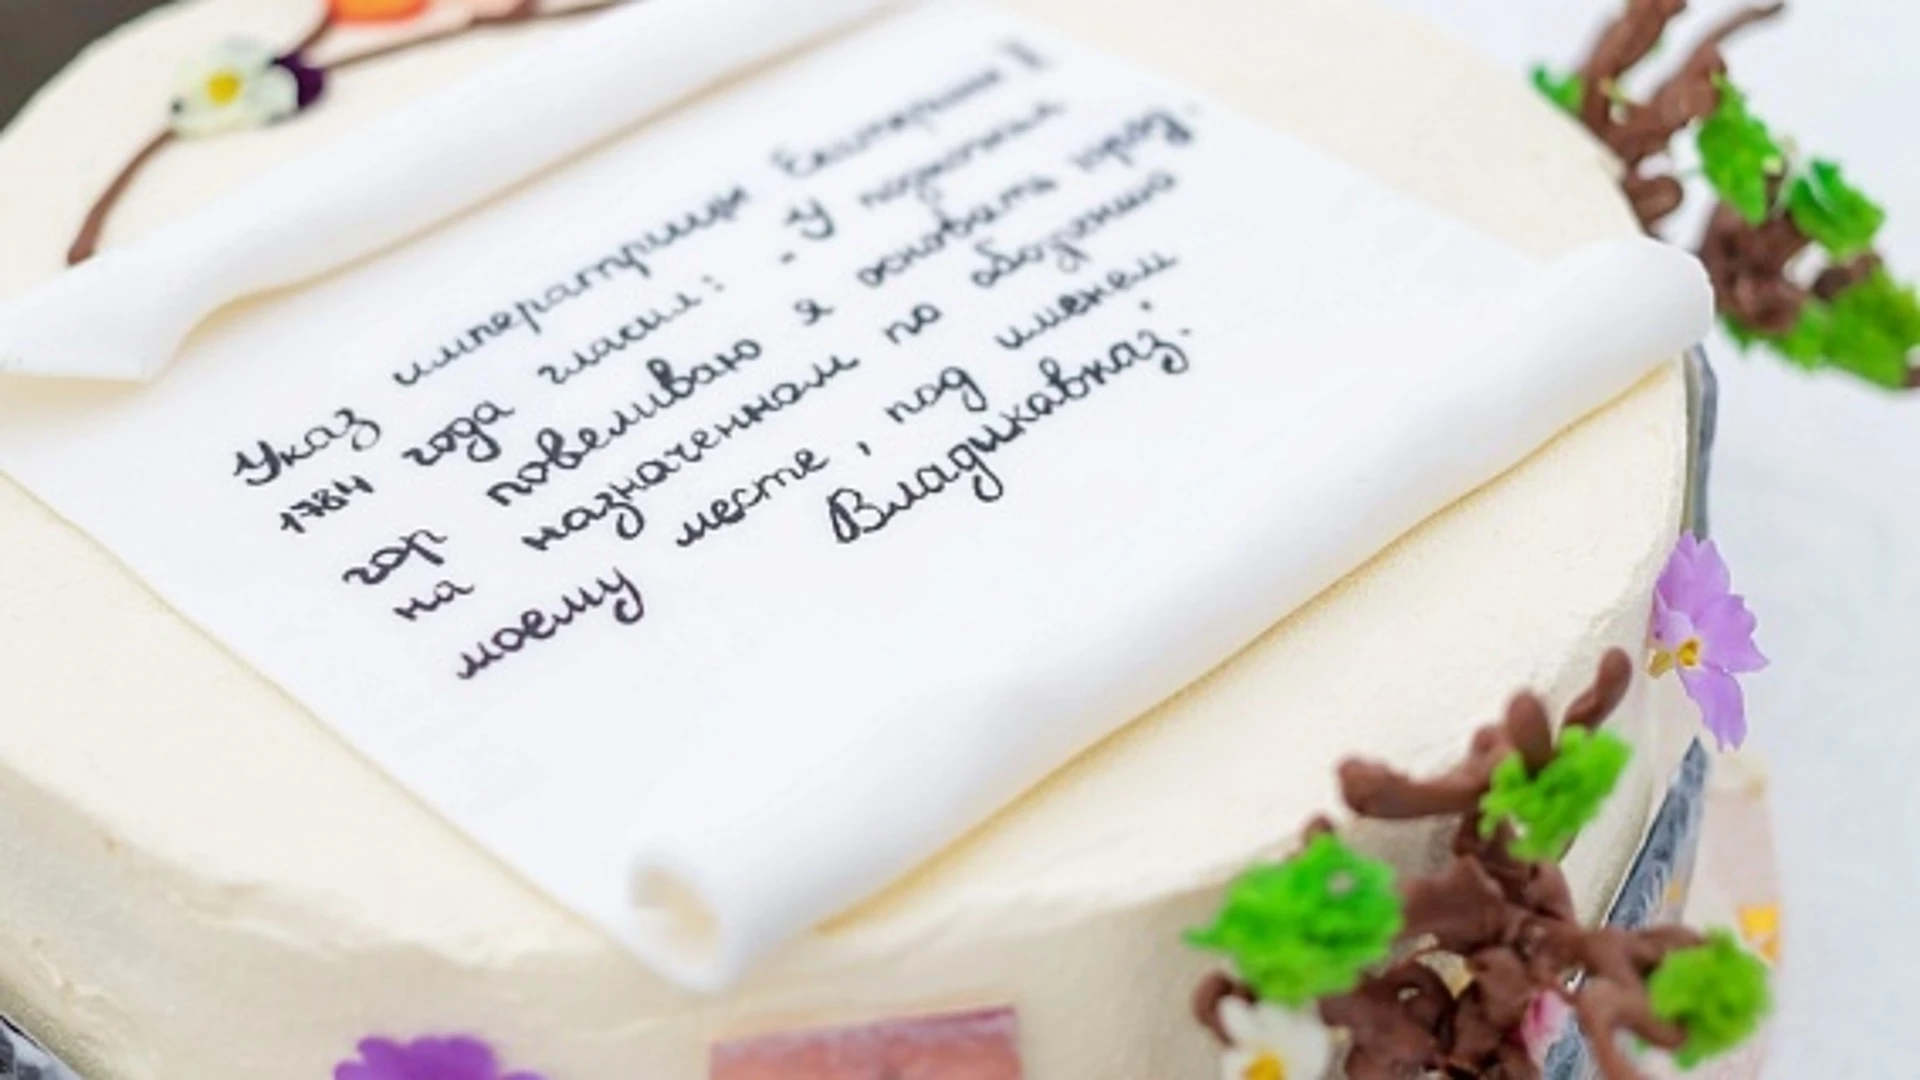 Указ императрицы Екатерины II
1784 года гласил: "У подножия
гор повеливаю я основать город.
на назначенном по обозрению
моему месте, под именем
Владикавказ".